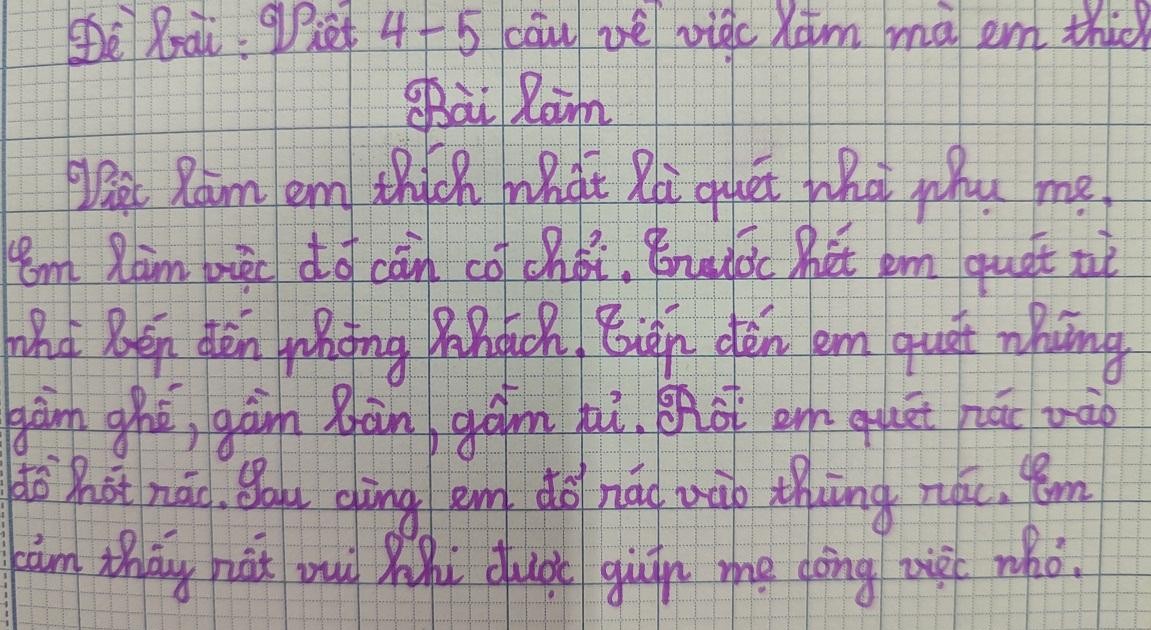 Đề bài: Viết 4-5 câu về việc làm mà em thích
Bài làm
Việc làm em thích nhất là quét nhà phụ mẹ.
Em làm việc đó cần có chổi. Trước hết em quét từ
nhà bếp đến phòng khách. Tiếp đến em quét những
gầm ghế, gầm bàn, gầm tủ. Rồi em quét rác vào
đồ hốt rác. Sau cùng em đổ rác vào thùng rác. Em
cảm thấy rất vui khi được giúp mẹ công việc nhỏ.